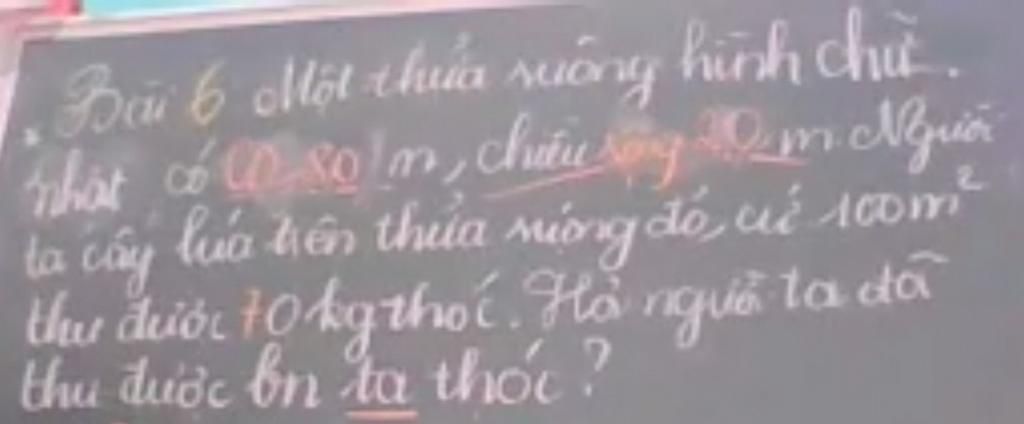 Bài 6 Một thửa ruộng hình chữ.
nhật có CD 80 m, chiều rộng 20 m. Người
ta cấy lúa trên thửa ruộng đó, cứ 100m²
thu được 70 kg thóc. Hỏi người ta đã
thu được bn tạ thóc?